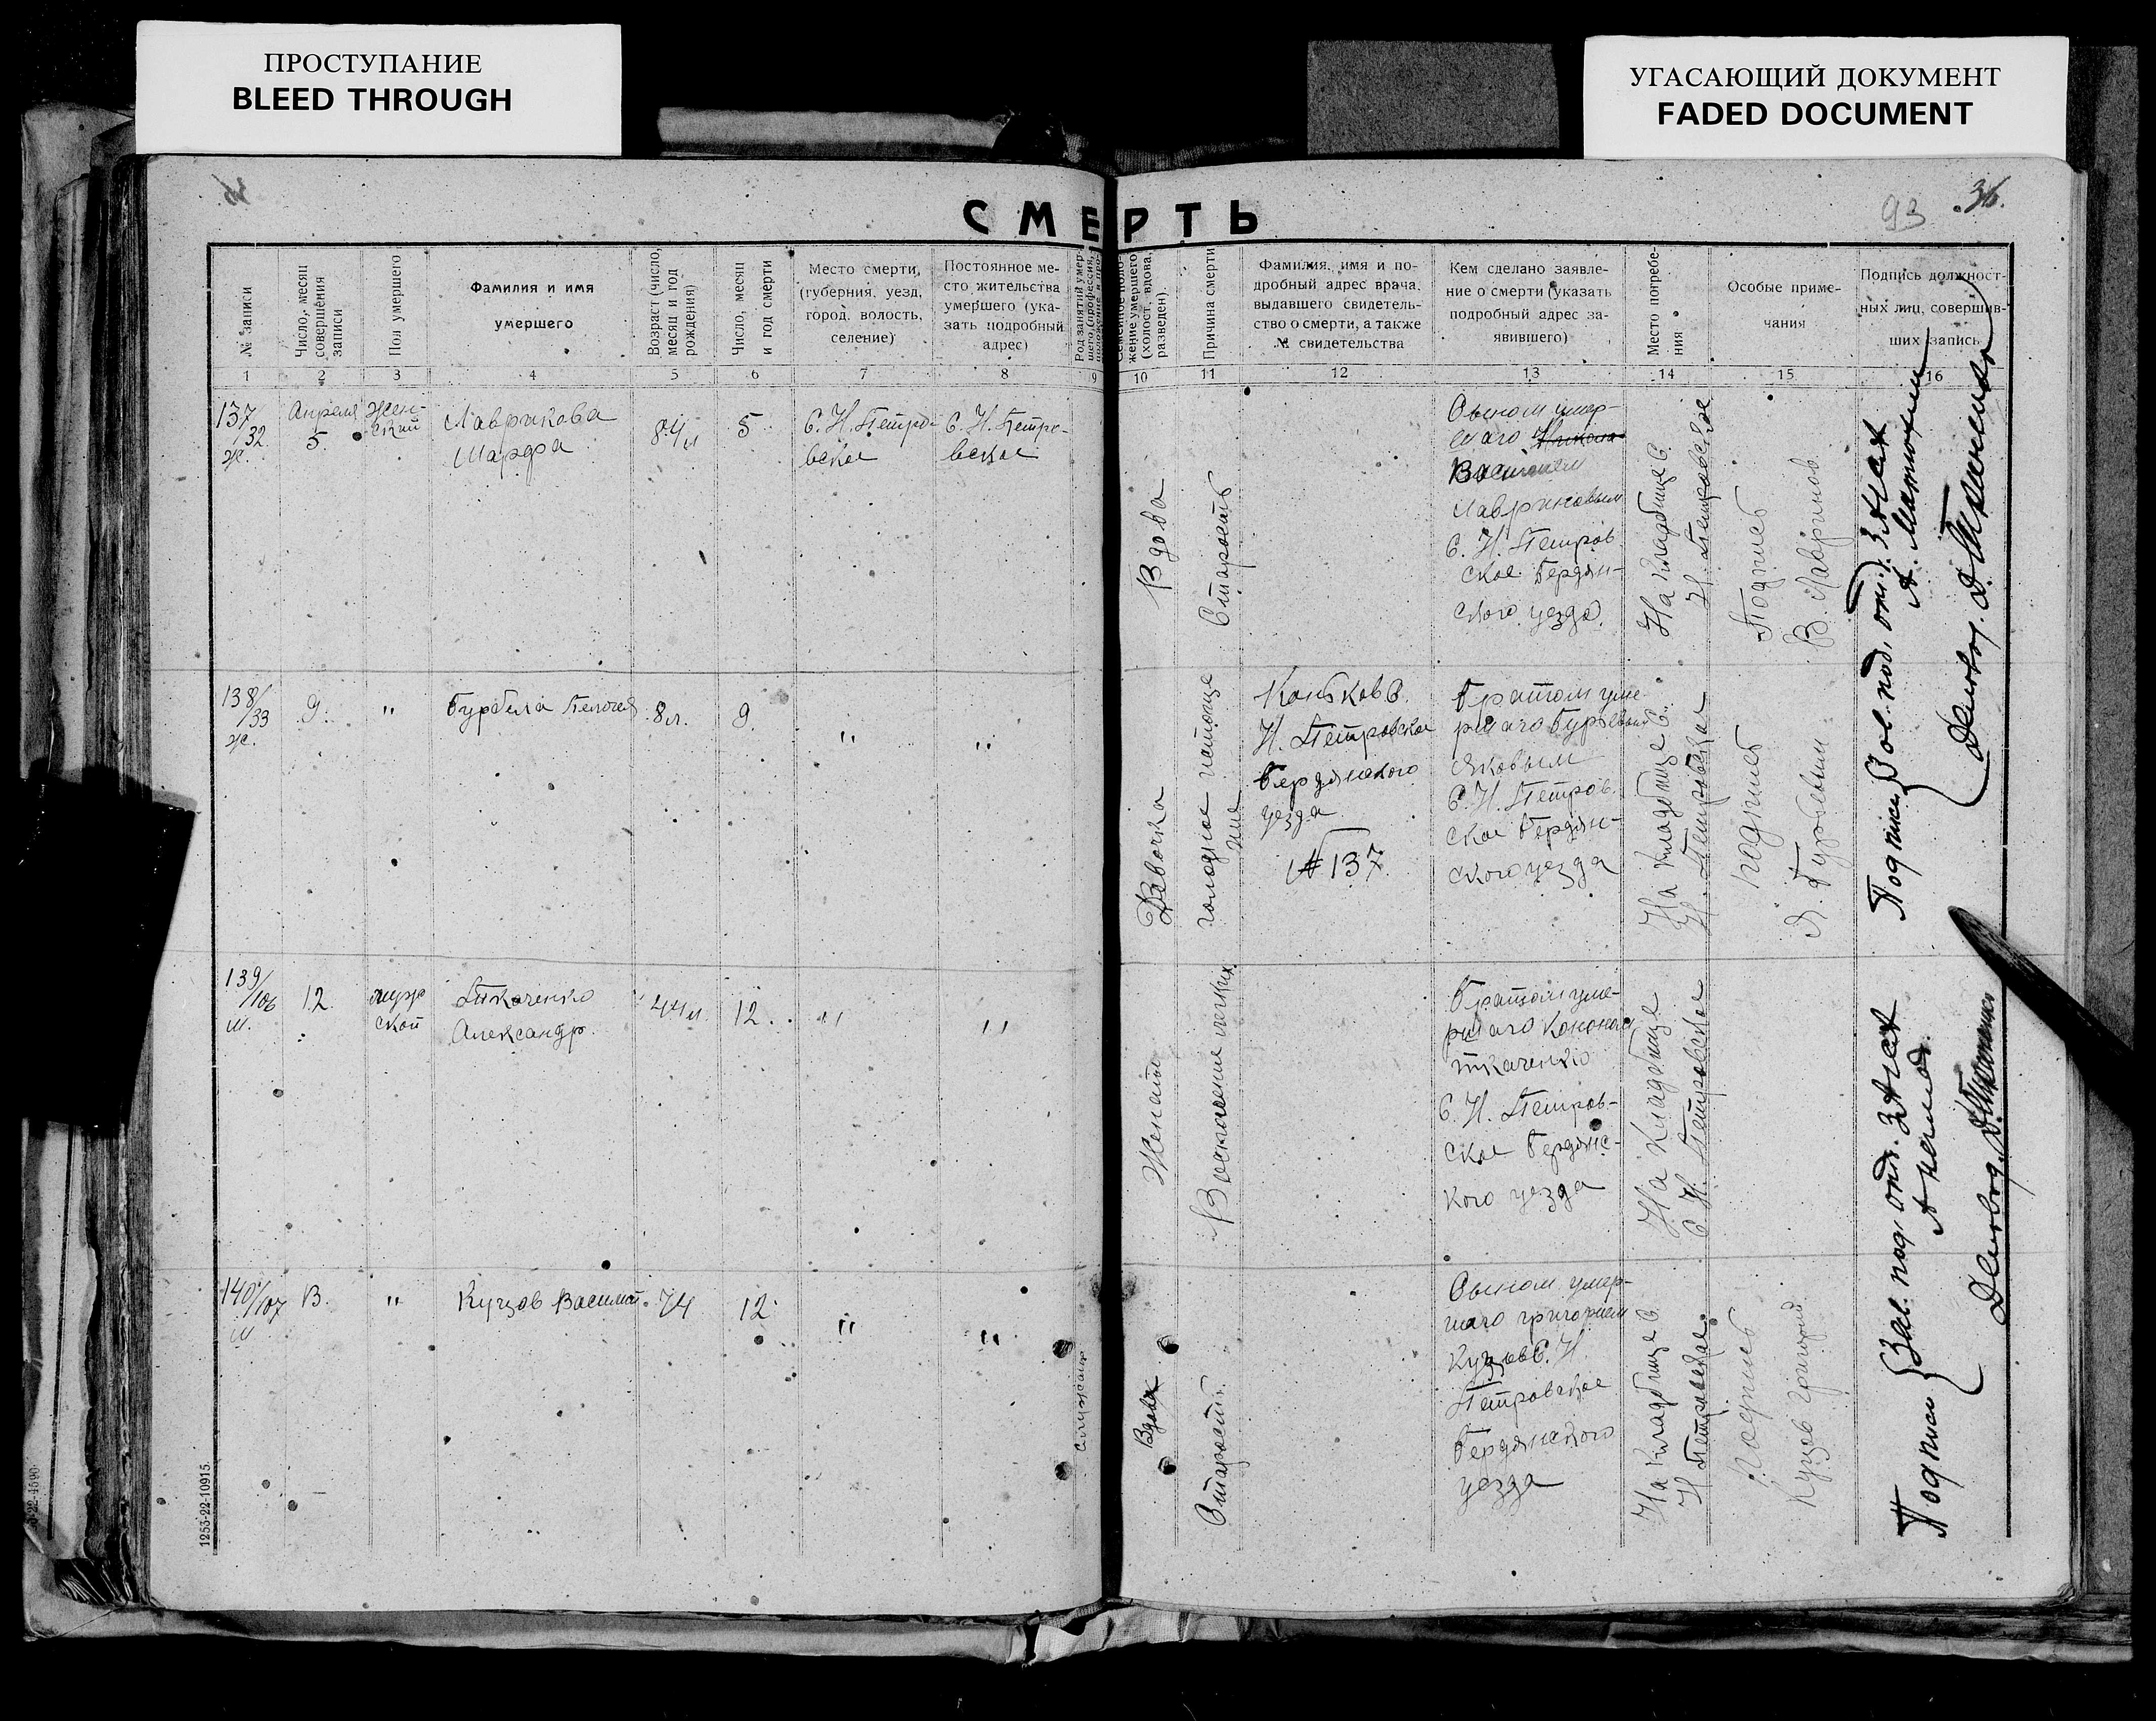 ПРОСТУПАНИЕ
BLEED THROUGH
УГАСАЮЩИЙ ДОКУМЕНТ
FADED DOCUMENT
93 36.
СМЕРТЬ
№ записи
Число, месяц
совершения
записи
Пол умершего
Фамилия и имя
умершего
Возраст (число,
месяц и год
рождения)
Число, месяц
и год смерти
Место смерти,
(губерния, уезд,
город, волость,
селение)
Постоянное ме-
сто жительства
умершего (ука-
зать подробный
адрес)
Род занятий умер-
шего (профессия,
жение умершего
(холост, вдова,
разведен).
Причина смерти
Фамилия, имя и по-
дробный адрес врача,
выдавшего свидетель-
ство о смерти, а также
№ свидетельства
Кем сделано заявле-
ние о смерти (указать
подробный адрес за-
явившего)
Место погребе-
ния
Особые приме-
чания
Подпись должност-
ных лиц, соверши-
ших запись
1 2 3 4 5 6 7 8 9 10 11 12 13 14 15 16
137/32
ж.
Апреля
5
Жен-
ский
Лаврикова
Марфа
84 л
5
С. Н. Петро-
вское
С. Н. Петро-
вское
Вдова
Старость
Сыном умер-
шаго
Василием
Лавриновым
С. Н. Петров
ское Бердян-
ского уезда.
На кладбище С.
Н. Петровское
Подпись
В. Лавринов
138/33
ж.
9.
"
8 л.
9
"
"
Девочка
голодное истоще
ние
Коньков С.
Н. Петровское
Бердянского
уезда
№ 137
Братом уме
ршаго
Яковым
С. Н. Петров.
ское Бердян-
ского уезда
На кладбище С.
Н. Петровское
подпись
Подписи
Зав. под. отд. ЗАГСА
Делопр.
139/106
м.
12.
муж
ской
Ткаченко
Александр.
44 л.
12.
"
"
Женат
Воспаление легких.
Братом уме-
ршаго Кононом
Ткаченко
С. Н. Петров-
ское Бердянс-
кого уезда
На кладбище
С Н. Петровское
140/107
м
"
Куцов Василий.
74
12
"
"
Вдов
Старость.
Сыном умер-
шаго григорием
Куцов С. Н.
Петровское
Бердянского
уезда
На кладбище С.
Н Петровское.
Подпись
Куцов Григорий
Подписи
Зав. под. отд. ЗАГСА
Делопр.
1253-22-10915.